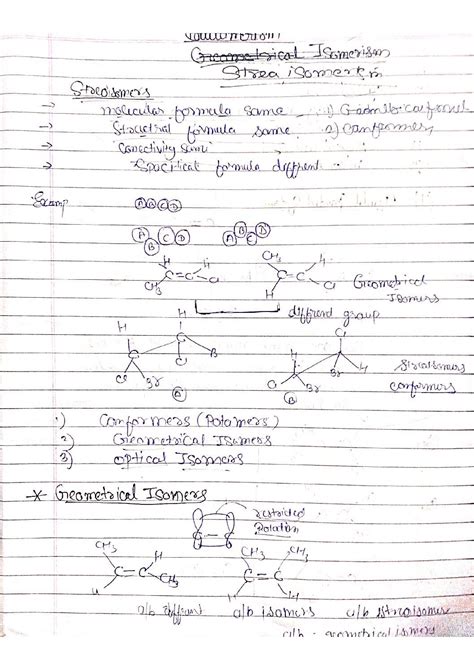 Geometrical Isomerism
Streaisomerism
Streoisomers
→ molecular formula same 1) Geometrical
→ Structral formula same 2) Conformers
→ Conectivity same
→ formula diffrent
Examp A B C D
A B C D A B C D
H H CH3 H
C=C C=C
CH3 Cl H Cl
Geometrical
Isomers
diffrent group
H H Cl
C C H
Cl Br Br H
Cl Br
A B
Streoisomers
conformers
1) Conformers (Rotamers)
2) Geometrical Isomers
3) optical Isomers
* Geometrical Isomers
restricted
Rotation
CH3 H CH3 CH3
C=C C=C
H CH3 H H
a/b diffrent a/b isomers a/b streoisomer
a/b - geometrical isomers